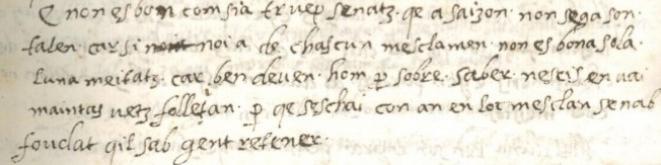 E non es bom com sia truep senatz · qe a saizon · non sega son ·
talen · car si noi a de chascun mesclamen · non es bona sola ·
luna meitatz · car ben deven · hom p sobre · saber · nescis en va ·
maintas vetz follejan · p qe sescha · con an en loc mesclan senab
foudat qil sab gent retener ·